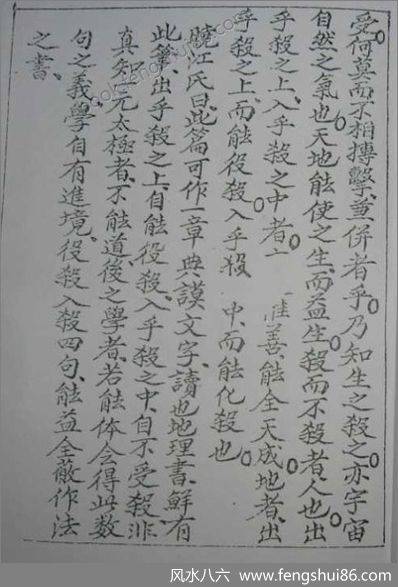 受何莫而不相摶擊兼併者乎乃知生之殺之亦宇宙
自然之氣也天地能使之生而益生殺而不殺者人也出
乎殺之上入乎殺之中者 惟善能全天成地者出
乎殺之上而能役殺入乎殺 中而能化殺也
曉江氏曰此篇可作一章典謨文字讀也地理書鮮有
此筆出乎殺之上自能役殺入乎殺之中自不受殺非
真知一元太極者不能道後之學者若能体会得此数
句之義學自有進境役殺入殺四句能益全蔽作法
之書
风水八六 www.fengshui86.com